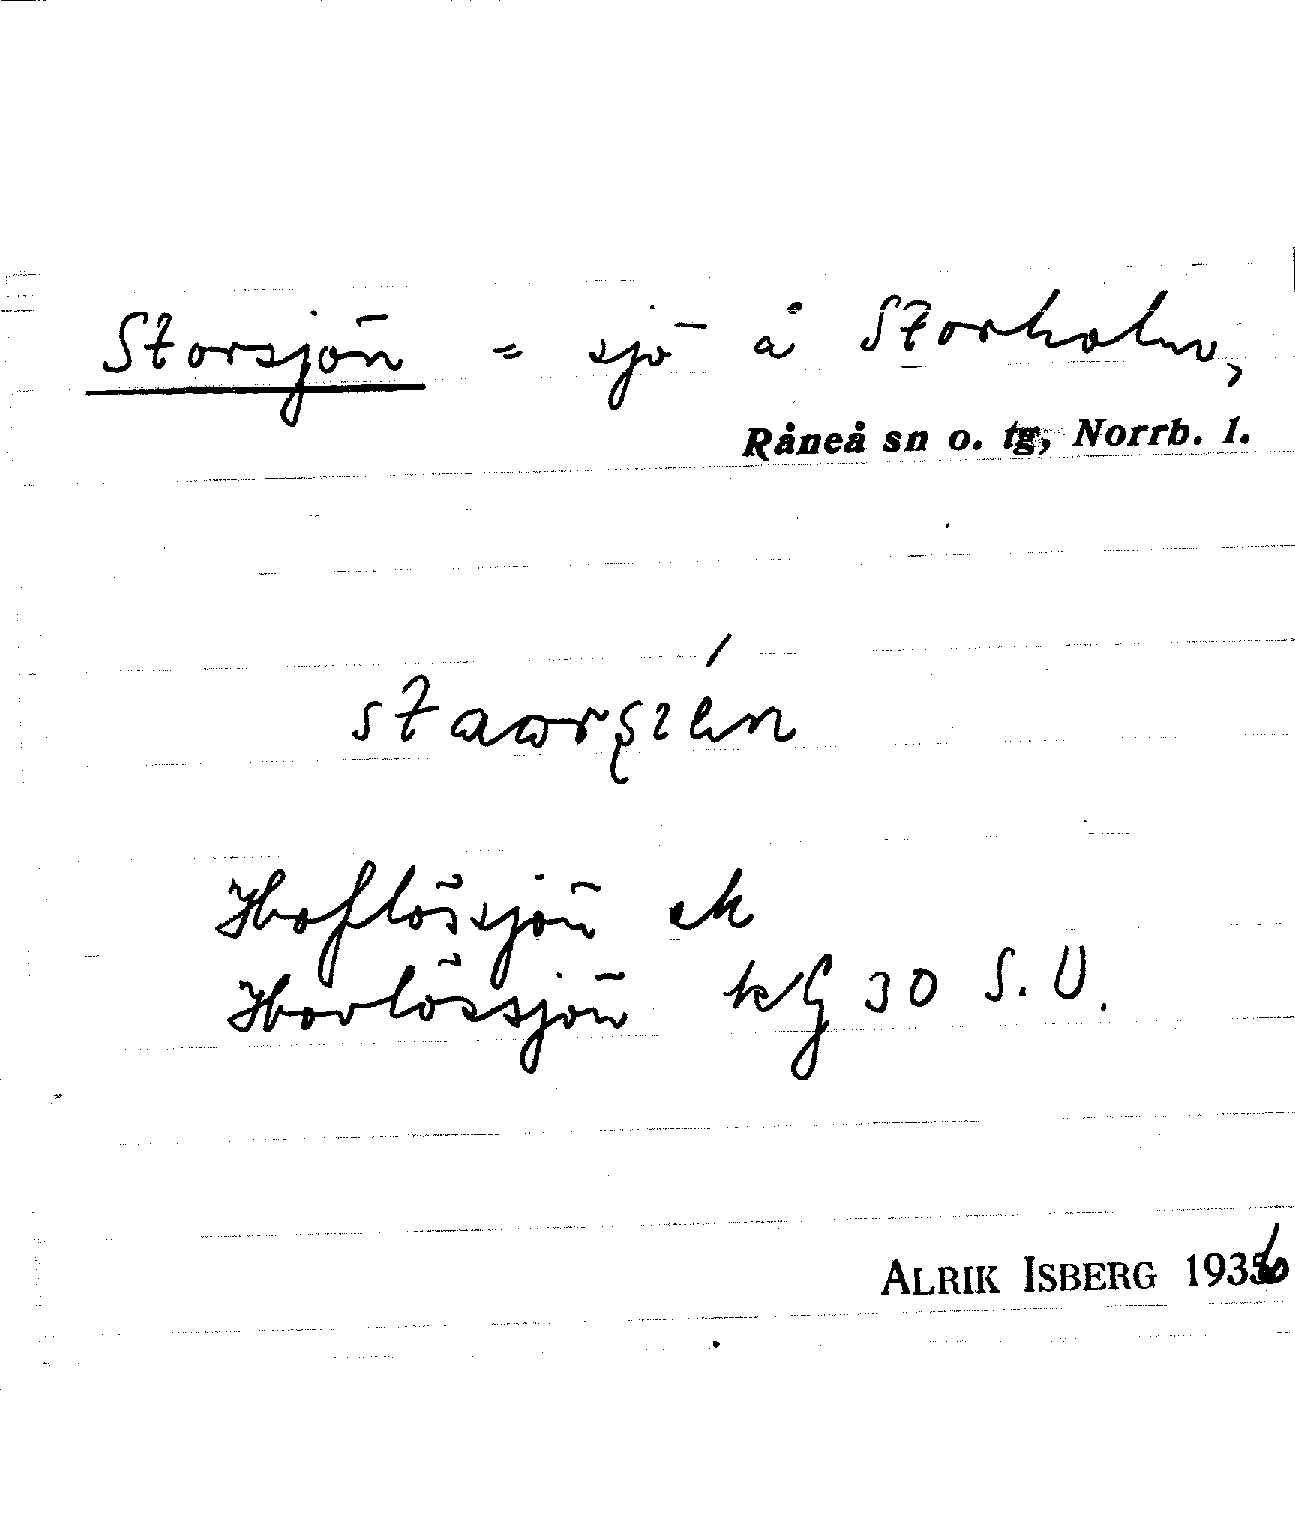 Storsjön = sjö å Storholm,
Råneå sn o. tg, Norrb. l.
Hoflössjön ek
Hovlössjön kG 30 S.U.
ALRIK ISBERG 1936